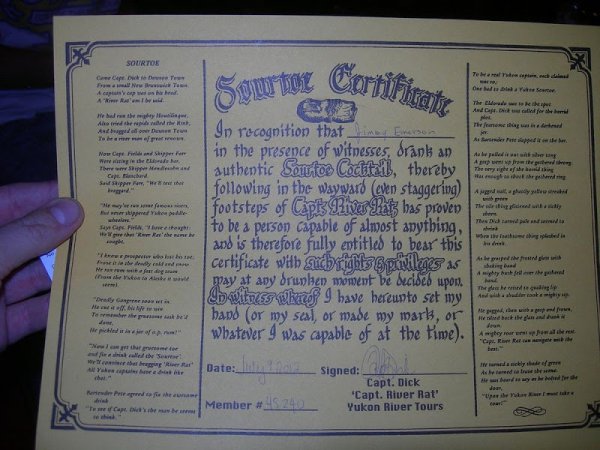 SOURTOE
Came Capt. Dick to Dawson Town
From a small New Brunswick Town.
A captain's cap was on his head.
A 'River Rat' am I he said.
He had run the mighty Hootilinqua,
Also tried the rapids called the Rink,
And bragged all over Dawson Town
To be a river man of great renown.
Now Capt. Fields and Skipper Farr
Were sitting in the Eldorado bar.
There were Skipper Mendlesohn and
Capt. Blanchard.
Said Skipper Farr, "We'll test that
braggard."
"He may've run some famous rivers,
But never skippered Yukon paddle-
wheelers."
Says Capt. Fields, "I have a thought:
We'll give that 'River Rat' the name he
sought.
"I knew a prospector who lost his toe,
Froze it in the deadly cold and snow.
He ran rum with a fast dog team
(From the Yukon to Alaska it would
seem).
"Deadly Gangrene soon set in.
He cut it off, his life to save
To remember the gruesome task he'd
done,
He pickled it in a jar of o.p. rum!"
"Now I can get that gruesome toe
and fix a drink called the 'Sourtoe'.
We'll convince that bragging 'River Rat'
All Yukon captains have a drink like
that."
Bartender Pete agreed to fix the awesome
drink
"To see if Capt. Dick's the man he seems
to think."
Sourtoe Certificate
In recognition that Jimmy Emerson
in the presence of witnesses, drank an
authentic Sourtoe Cocktail, thereby
following in the wayward (even staggering)
footsteps of Capt. River Rat, has proven
to be a person capable of almost anything,
and is therefore fully entitled to bear this
certificate with such rights & privileges as
may at any drunken moment be decided upon.
In witness whereof I have hereunto set my
hand (or my seal, or made my mark, or
whatever I was capable of at the time).
Date: July 9 2012 Signed:
Capt. Dick
'Capt. River Rat'
Yukon River Tours
Member # 48240
To be a real Yukon captain, each claimed
was so,
One had to drink a Yukon Sourtoe.
The Eldorado was to be the spot
And Capt. Dick was called for the horrid
plot.
The fearsome thing was in a darkened
jar.
As Bartender Pete slapped it on the bar.
As he pulled it out with silver tong
A gasp went up from the gathered throng.
The very sight of the horrid thing
Was enough to shock the gathered ring.
A jagged nail, a ghastly yellow streaked
with green
The toe thing glistened with a sickly
sheen.
Then Dick turned pale and seemed to
shrink
When the loathsome thing splashed in
his drink.
As he grasped the frosted glass with
shaking hand
A mighty hush fell over the gathered
band.
The glass he raised in quaking lip
And with a shudder took a mighty sip.
He gagged, then with a gasp and frown,
He tilted back the glass and drank it
down.
A mighty roar went up from all the rest:
"Capt. River Rat can navigate with the
best."
He turned a sickly shade of green
As he turned to leave the scene.
He was heard to say as he bolted for the
door,
"Upon the Yukon River I must take a
tour!"